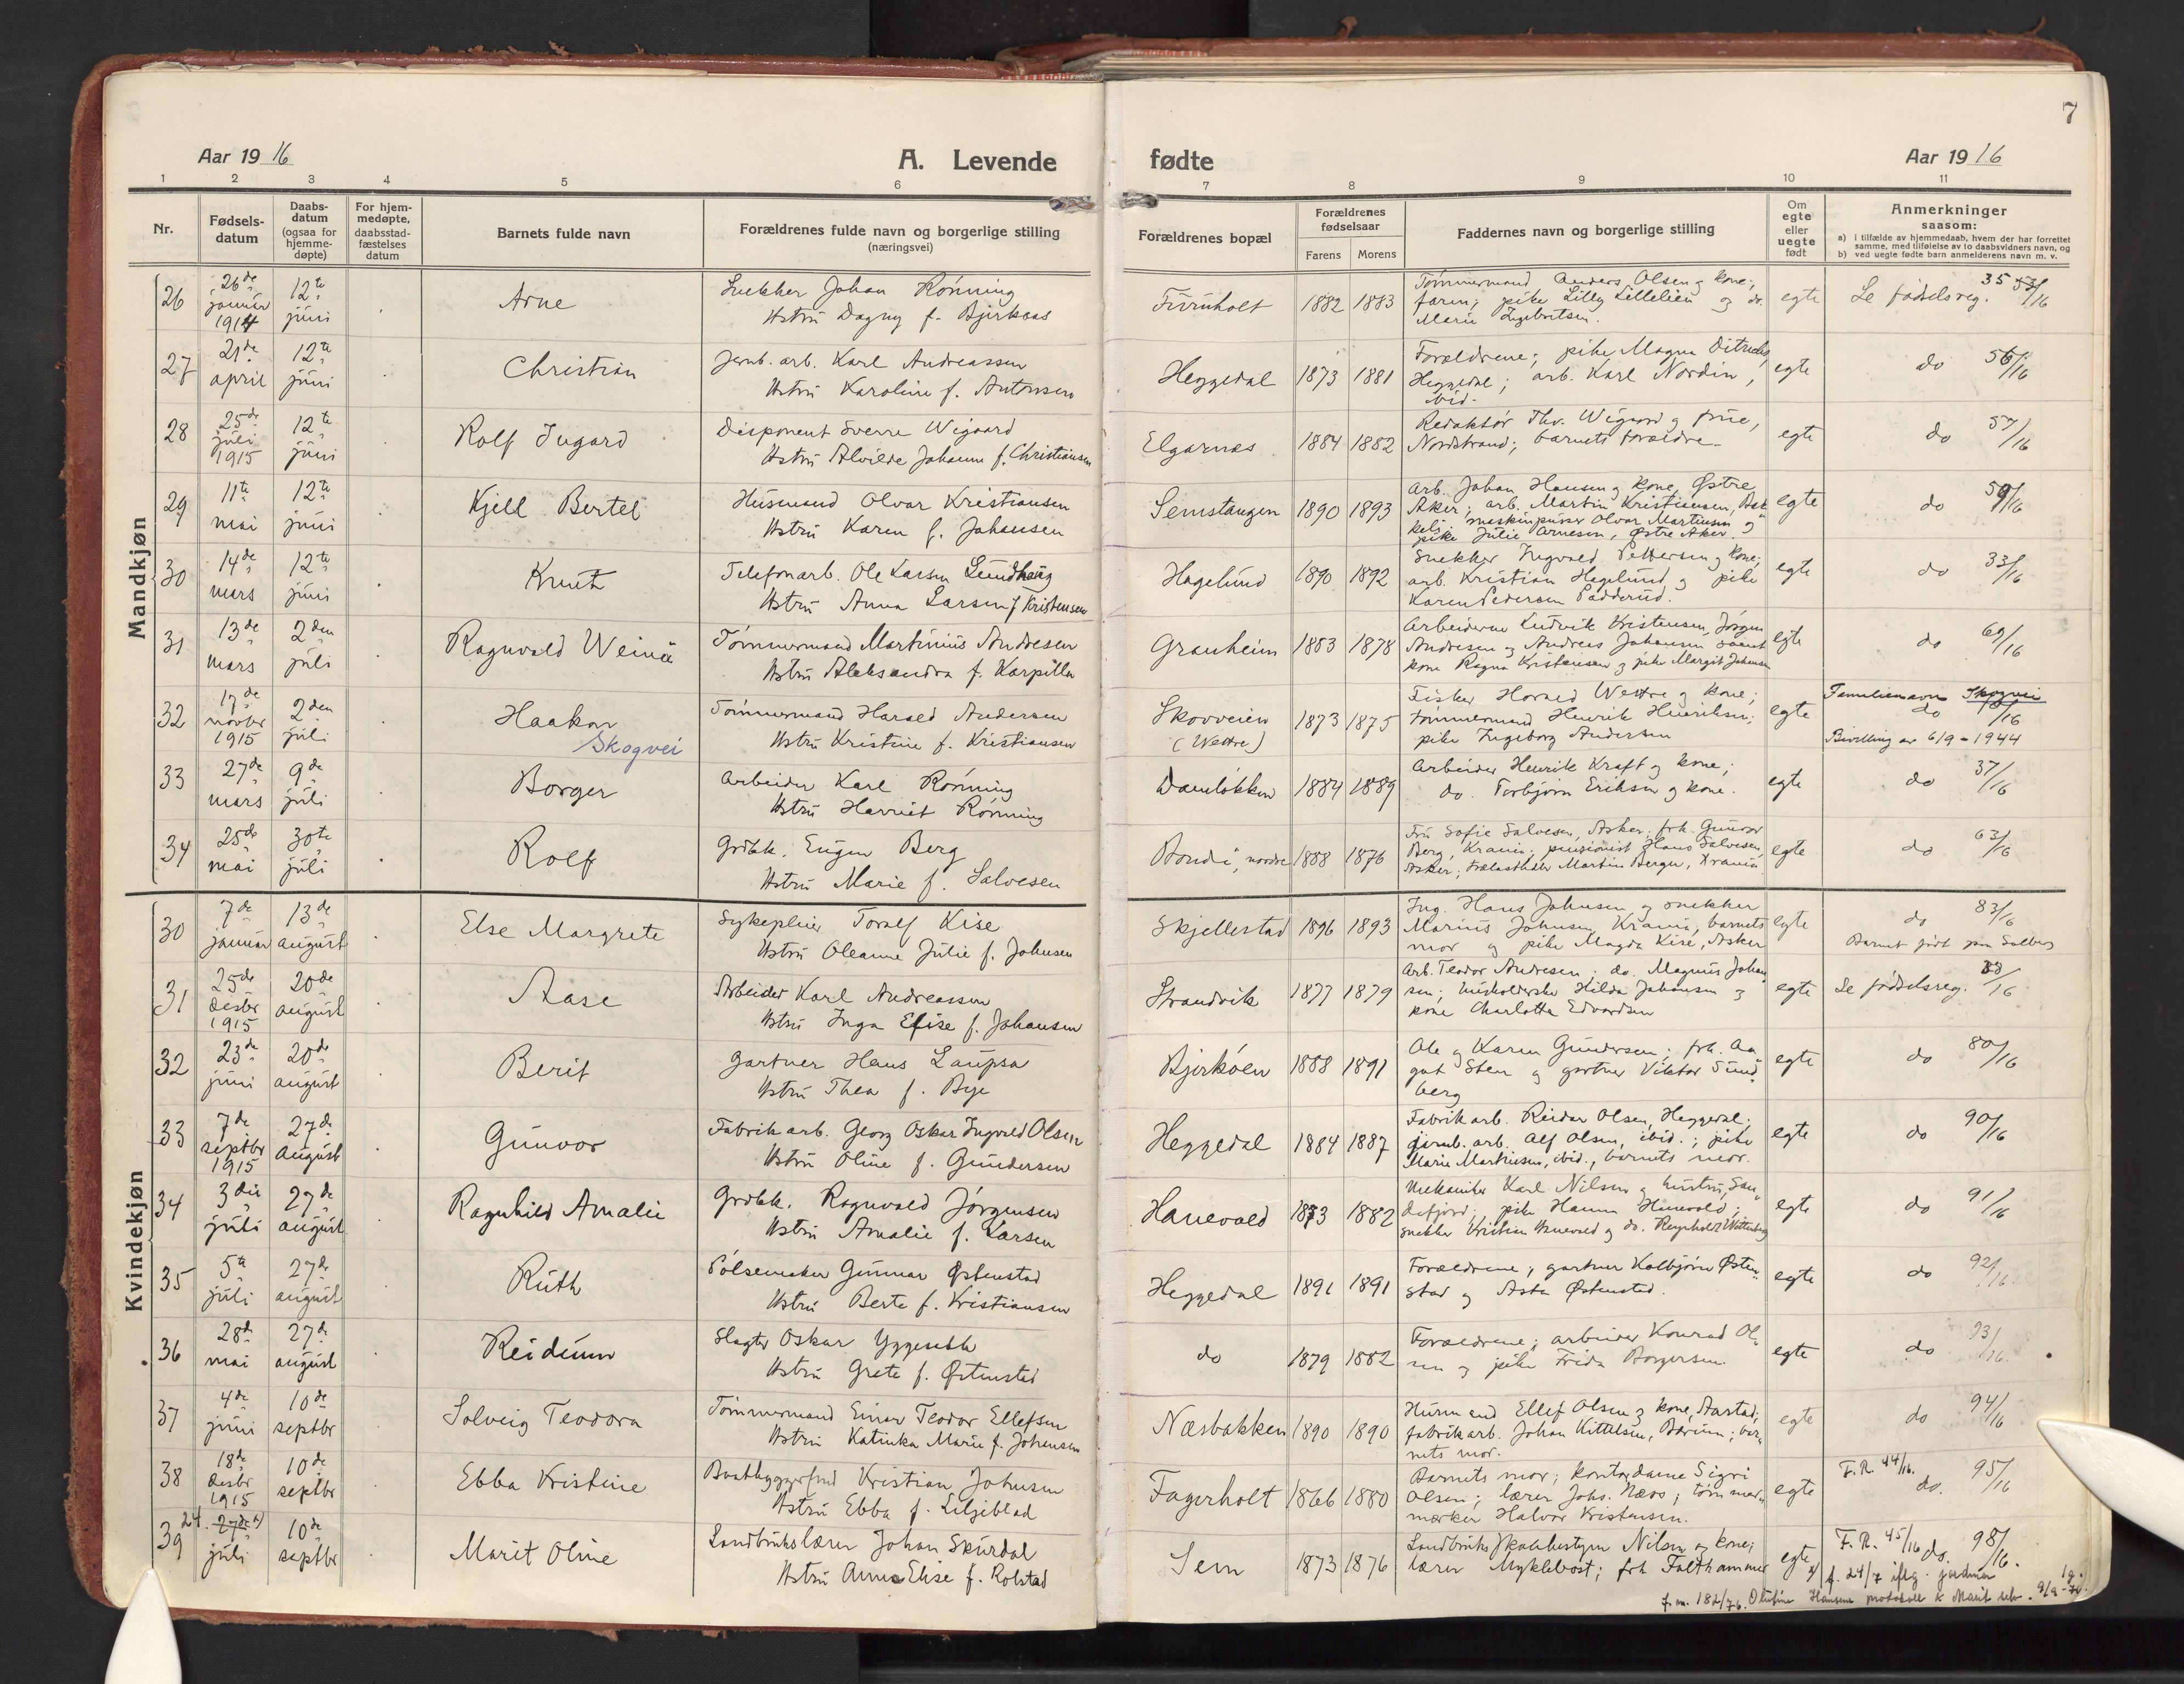 7
Aar 1916
A. Levende fødte
Aar 1916
1 2 3 4 5 6 7 8 9 10 11
Nr.
Fødsels-
datum
Daabs-
datum
(ogsaa for
hjemme-
døpte)
For hjem-
medøpte,
daabsstad-
fæstelses
datum
Barnets fulde navn
Forældrenes fulde navn og borgerlige stilling
(næringsvei)
Forældrenes bopæl
Forældrenes
fødselsaar
Farens Morens
Faddernes navn og borgerlige stilling
Om
egte
eller
uegte
født
Anmerkninger
saasom:
a) i tilfælde av hjemmedaab, hvem der har forrettet
samme, med tilføielse av to daabsvidners navn, og
b) ved uegte fødte barn anmelderens navn m. v.
Mandkjøn
26 26de januar 1914 12te juni Arne
Snekker Johan Rønning
Hstru Dagny f. Bjerkaas
Furuholt 1882 1883
Tømmermand Anders Olsen og kone;
faren; pike Lilly Lillelien og do.
Marie Ingebretsen.
egte Se fødselsreg. 35
27 21de april 12te juni Christian
Jernb. arb. Karl Andreassen
Hstru Karoline f. Antonsen
Heggedal 1873 1881
Forældrene; pike Magna
Heggedal; arb. Karl Nordin,
ibid.
egte do 56/16
28 25de juli 1915 12te juni Rolf Ingard
Disponent Sverre Wigaard
Hstru Alvilde Johanne f. Christiansen
Elgarnes 1884 1882
Redaktør Thv. Wigaard og frue,
Nordstrand; barnets forældre.
egte do 57/16
29 11te mai 12te juni Kjell Bertel
Husmand Olvar Kristiansen
Hstru Karen f. Johansen
Semstangen 1890 1893
Arb. Johan Hansen og kone, Østre
Aker; arb. Martin Kristiansen,
maskinpusser Olvar Martinsen og
pike Julie Arnesen, Østre Aker.
egte do 59/16
30 14de mars 12te juni Knut
Telefonarb. Ole Larsen Lundhaug
Hstru Anna Larsen f. Kristensen
Hagelund 1890 1892
Snekker Ingvald Pettersen og kone;
arb. Kristian Hagelund og pike
Karen Pedersen Padderud.
egte do 33/16
31 13de mars 2den juli Ragnvald Weinü
Tømmermand Martinius Andresen
Hstru Aleksandra f. Karpilla
Granheim 1883 1878
Arbeiderne Ludvik Kristensen, Jørgen
Andresen og Andreas Johansen samt
kone Ragna Kristensen og pike Margit Johansen
egte do 69/16
32 17de novbr 1915 2den juli Haakon
Skogvei
Tømmermand Harald Andersen
Hstru Kristine f. Kristiansen
Skovveien
(Wettre)
1873 1875
Fisker Harald Wettre og kone;
tømmermand Henrik Henriksen;
pike Ingeborg Andersen
egte
Familienavn Skogvei
do
Bevilling av 6/9-1944
33 27de mars 9de juli Borger
Arbeider Karl Rønning
Hstru Harriet Rønning
Damløkken 1884 1889
Arbeider Henrik Kraft og kone;
do. Torbjørn Eriksen og kone.
egte do 37/16
34 25de mai 30te juli Rolf
Grdbk. Eugen Berg
Hstru Marie f. Salvesen
Bondi, nordre 1888 1876
Fru Sofie Salvesen, Asker; frk. Gunvor
Berg, Krania; pensionist Hans Salvesen,
Asker; Martin Berger, Krania
egte do 63/16
Kvindekjøn
30 7de januar 13de august Else Margrete
Sykepleier Toralf Kise
Hstru Oleanne Julie f. Johnsen
Skjellestad 1896 1893
Ing. Hans Johnsen og snekker
Marius Johnsen, Krania, barnets
mor og pike Magda Kise, Asker
egte do 83/16
Barnet født paa Solberg
31 25de desbr 1915 20de august Aase
Arbeider Karl Andreassen
Hstru Inga Elise f. Johansen
Strandvik 1877 1879
Arb. Teodor Andresen; do. Magnus Johan
sen; husholderske Hilda Johansen og
kone Charlotte Edvardsen
egte Se fødselsreg. 88/16
32 23de juni 20de august Berit
Gartner Hans Laupsa
Hstru Thea f. Bye
Bjerkøen 1888 1891
Ole og Karen Gundersen; frk. Aa
got Sten og gartner Viktor Sund
berg
egte do 80/16
33 7de septbr 1915 27de august Gunvor
Fabrikarb. Georg Oskar Ingvald Olsen
Hstru Oline f. Gundersen
Heggedal 1884 1887
Fabrikarb. Reidar Olsen, Heggedal;
jernb. arb. Alf Olsen, ibid.; pike
Marie Martinsen, ibid., barnets mor.
egte do 90/16
34 3die juli 27de august Ragnhild Amalie
Grdbk. Ragnvald Jørgensen
Hstru Amalie f. Larsen
Hanevold 1873 1882
Mekaniker Karl Nilsen og hustru, San
defjord; pike Hanna Hanevold;
snekker Kristian Hanevold og do.
egte do 91/16
35 5te juli 27de august Ruth
Pølsemaker Gunnar Østenstad
Hstru Berte f. Kristiansen
Heggedal 1891 1891
Forældrene; gartner Kolbjørn Østen
stad og Asta Østenstad.
egte do 92/16
36 28de mai 27de august Reidunn
Slagter Oskar Yggeseth
Hstru Grete f. Østenstad
do 1879 1882
Forældrene; arbeider Konrad Ol
sen og pike Frida Borgersen.
egte do 93/16
37 4de juni 10de septbr Solveig Teodora
Tømmermand Einar Teodor Ellefsen
Hstru Katinka Marie f. Johansen
Næsbakken 1890 1890
Husmand Ellef Olsen og kone,
fabrikarb. Johan Kittelsen, Bærum; bar
nets mor.
egte do 94/16
38 18de desbr 1915 10de septbr Ebba Kristine
Baatbygger Kristian Johnsen
Hstru Ebba f. Liljeblad
Fagerholt 1866 1880
Barnets mor; kontordame Sigri
Olsen; lærer Johs. Næss; tømmer
merker Halvor Kristensen.
egte F.R. 44/16. do. 95/16
39 24. 27de x) juli 10de septbr Marit Oline
Landbrukslærer Johan Skurdal
Hstru Anna Elise f. Rolstad
Sem 1873 1876
Landbruksskolebestyrer Nilsen og kone;
lærer Myklebost; frk Falthammer
egte F.R. 45/16 do. 98/16.
x) f. 24/7 iflg. jordmor
f.m. 182/76. Hansens protokoll & Marit selv. 9/9-76.